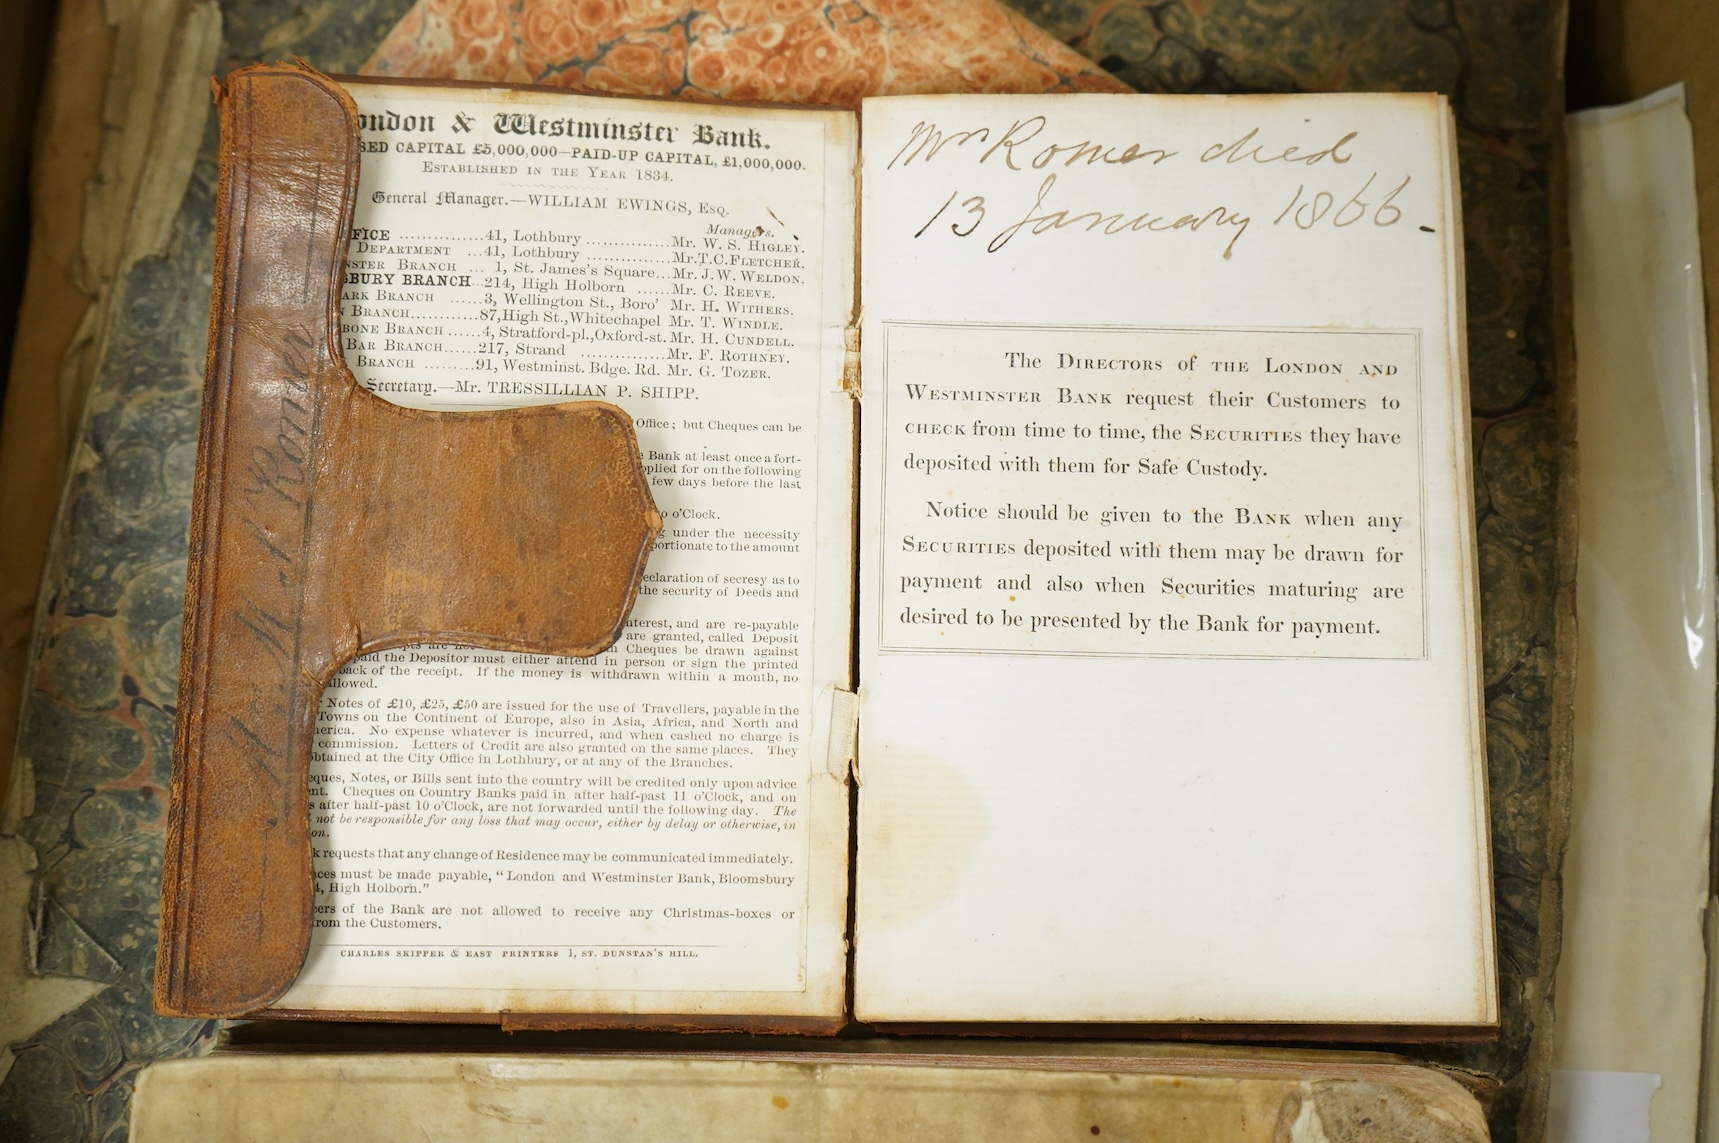 ondon & Westminster Bank.
SED CAPITAL £5,000,000—PAID-UP CAPITAL, £1,000,000.
ESTABLISHED IN THE YEAR 1834.
General Manager.—WILLIAM EWINGS, ESQ.
Managers.
FICE ..............41, Lothbury ..............Mr. W. S. HIGLEY.
DEPARTMENT ...41, Lothbury ..............Mr.T.C.FLETCHER.
NSTER BRANCH ... 1, St. James's Square...Mr. J. W. WELDON.
SBURY BRANCH...214, High Holborn ......Mr. C. REEVE.
ARK BRANCH ......3, Wellington St., Boro' Mr. H. WITHERS.
N BRANCH............87,High St.,Whitechapel Mr. T. WINDLE.
BONE BRANCH ......4, Stratford-pl.,Oxford-st. Mr. H. CUNDELL.
BAR BRANCH......217, Strand ..............Mr. F. ROTHNEY.
BRANCH .........91, Westminst. Bdge. Rd. Mr. G. TOZER.
Secretary.—Mr. TRESSILLIAN P. SHIPP.
Office; but Cheques can be
e Bank at least once a fort-
pplied for on the following
few days before the last
o o'Clock.
g under the necessity
portionate to the amount
eclaration of secresy as to
the security of Deeds and
nterest, and are re-payable
are granted, called Deposit
Cheques be drawn against
paid the Depositor must either attend in person or sign the printed
back of the receipt. If the money is withdrawn within a month, no
llowed.
Notes of £10, £25, £50 are issued for the use of Travellers, payable in the
Towns on the Continent of Europe, also in Asia, Africa, and North and
merica. No expense whatever is incurred, and when cashed no charge is
commission. Letters of Credit are also granted on the same places. They
obtained at the City Office in Lothbury, or at any of the Branches.
eques, Notes, or Bills sent into the country will be credited only upon advice
nt. Cheques on Country Banks paid in after half-past 11 o'Clock, and on
s after half-past 10 o'Clock, are not forwarded until the following day. The
not be responsible for any loss that may occur, either by delay or otherwise, in
on.
k requests that any change of Residence may be communicated immediately.
nces must be made payable, "London and Westminster Bank, Bloomsbury
4, High Holborn."
cers of the Bank are not allowed to receive any Christmas-boxes or
from the Customers.
CHARLES SKIPPER & EAST PRINTERS 1, ST. DUNSTAN'S HILL.
Romer
Mr Romer died
13 January 1866.
The DIRECTORS of THE LONDON AND
WESTMINSTER BANK request their Customers to
CHECK from time to time, the SECURITIES they have
deposited with them for Safe Custody.
Notice should be given to the BANK when any
SECURITIES deposited with them may be drawn for
payment and also when Securities maturing are
desired to be presented by the Bank for payment.